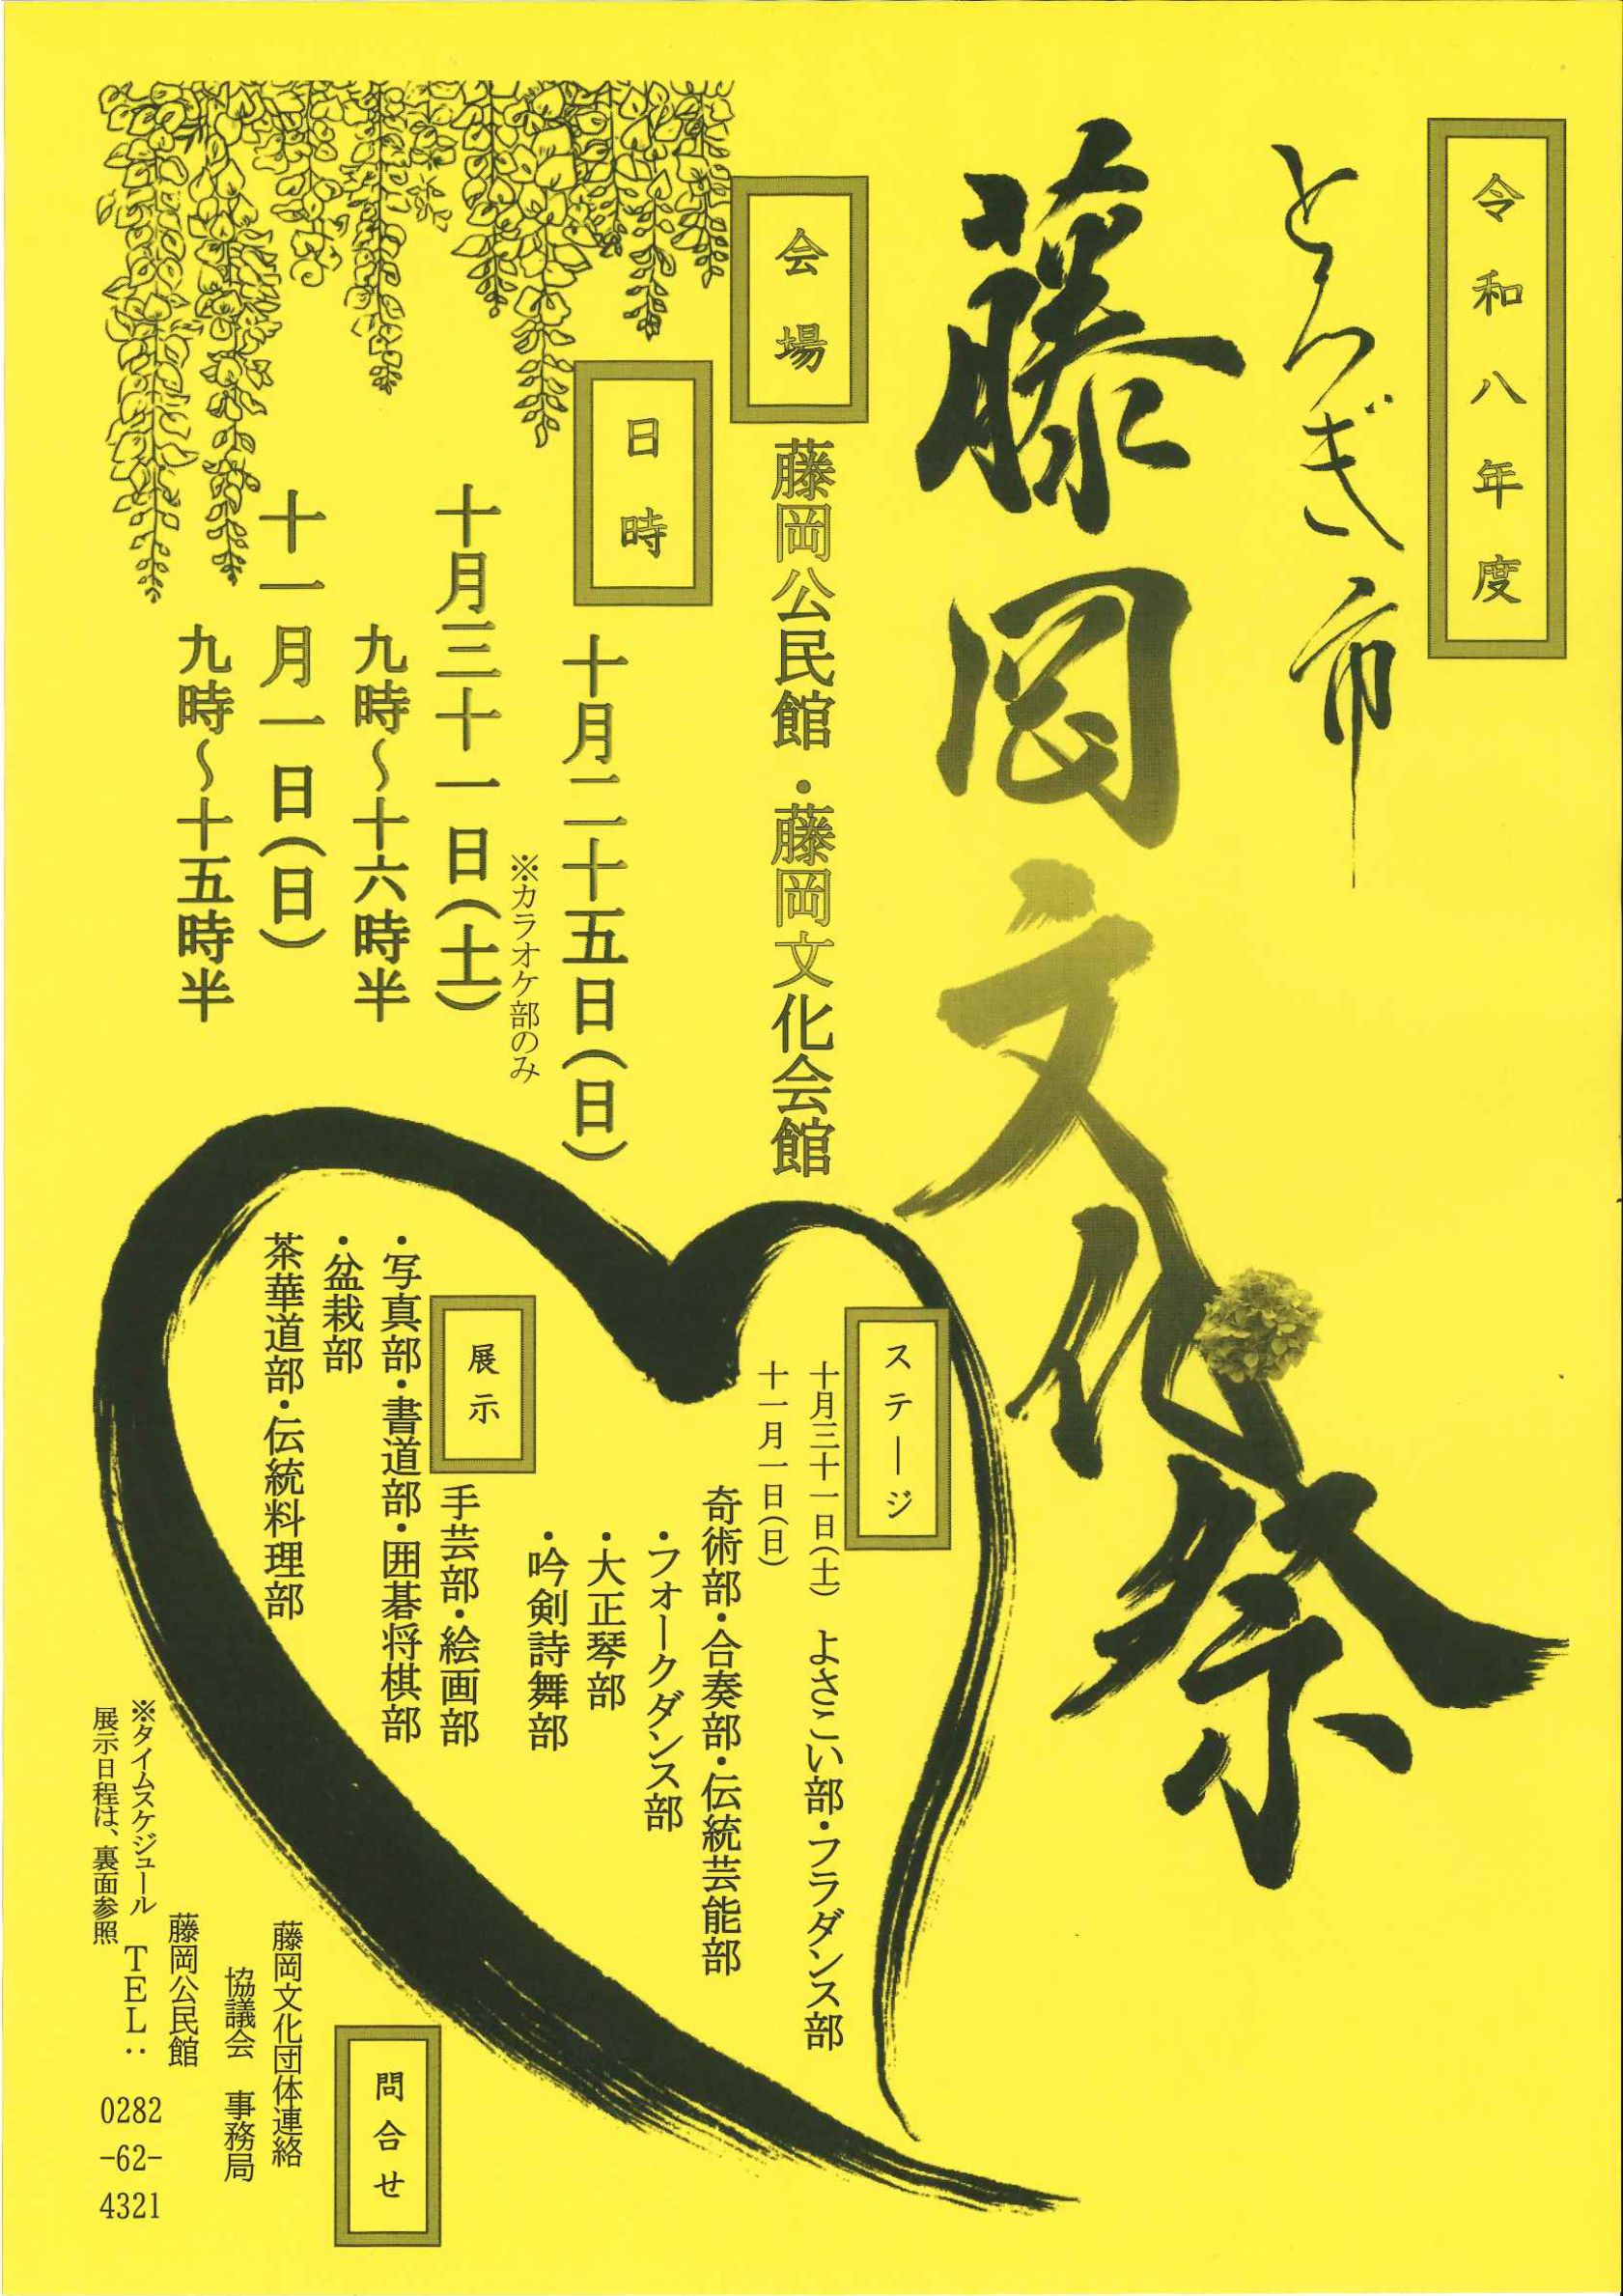 令和八年度
とちぎ市
藤岡文化祭
会場
藤岡公民館・藤岡文化会館
日時
十月二十五日(日)
※カラオケ部のみ
十月三十一日(土)
九時～十六時半
十一月一日(日)
九時～十五時半
ステージ
十月三十一日(土) よさこい部・フラダンス部
十一月一日(日)
奇術部・合奏部・伝統芸能部
・フォークダンス部
・大正琴部
・吟剣詩舞部
展示
手芸部・絵画部
・写真部・書道部・囲碁将棋部
・盆栽部
茶華道部・伝統料理部
問合せ
藤岡文化団体連絡
協議会 事務局
藤岡公民館
TEL:
0282
-62-
4321
※タイムスケジュール
展示日程は、裏面参照